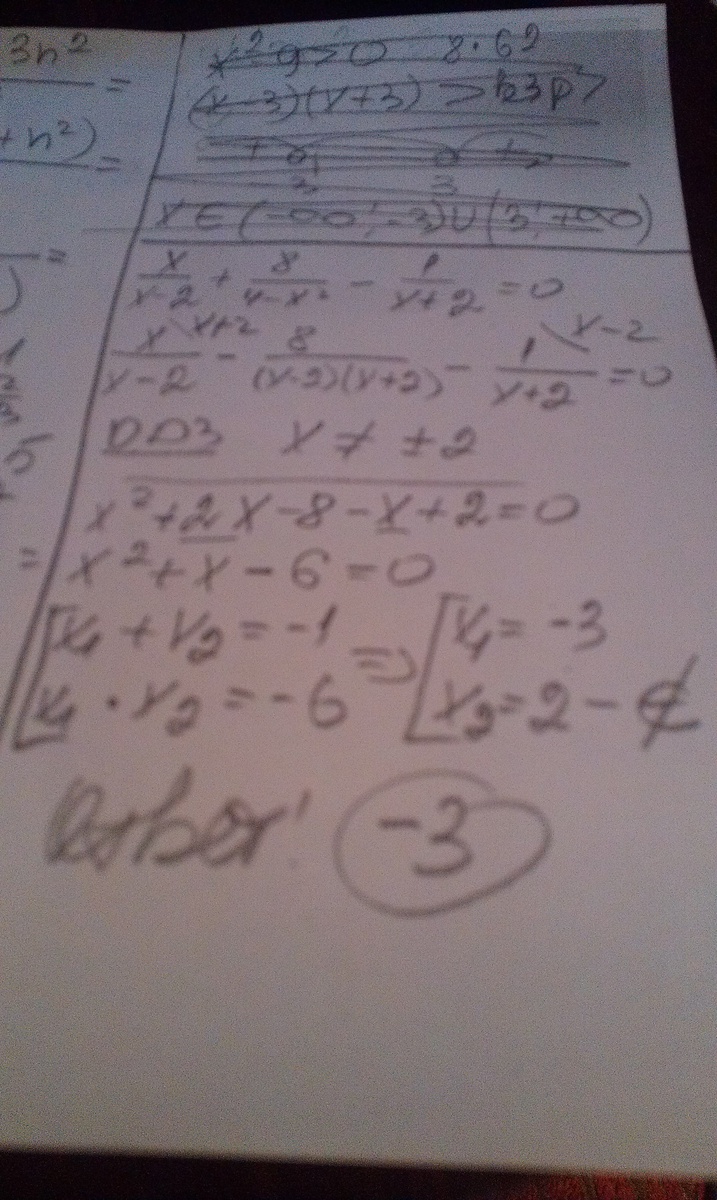 3n²
=
+ n²)
=
=
)
1
5
=
x² 9 > 0 8.69
(x-3)(x+3) >
+ +
-3 3
x ∈ (-∞; -3) ∪ (3; +∞)
x/(x-2) + 8/(4-x²) - 1/(x+2) = 0
x\x+2/(x-2) - 8/((x-2)(x+2)) - 1\x-2/(x+2) = 0
ОДЗ x ≠ ±2
x² + 2x - 8 - x + 2 = 0
x² + x - 6 = 0
[x₁ + x₂ = -1 => [x₁ = -3
[x₁ · x₂ = -6 [x₂ = 2 - ∉
Ответ: -3